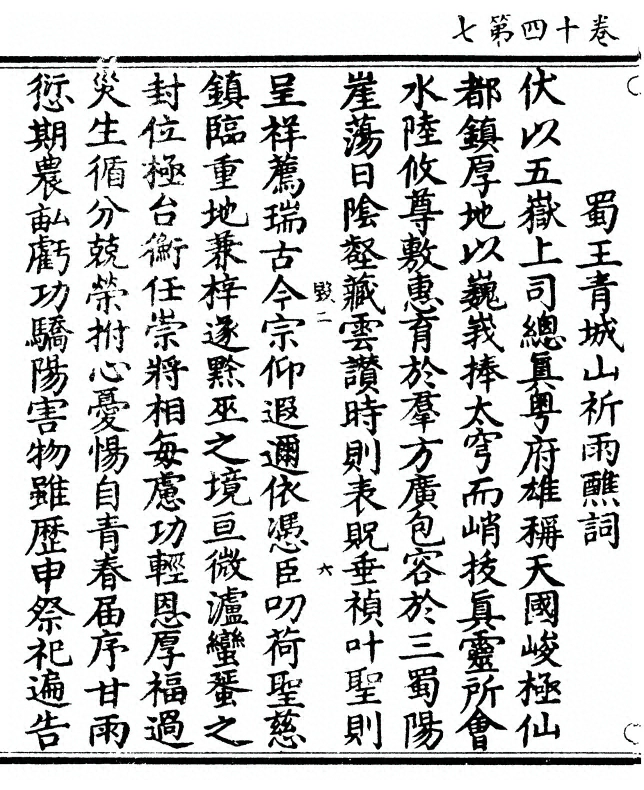 卷十四第七
蜀王青城山祈雨醮詞
伏以五嶽上司總眞粵府雄稱天國峻極仙
都鎮厚地以巍峩捧太穹而峭拔眞靈所會
水陸攸尊敷惠育於羣方廣包容於三蜀陽
崖蕩日陰壑藏雲讚時則表貺垂禎叶聖則
毀二 六
呈祥薦瑞古今宗仰遐邇依憑臣叨荷聖慈
鎮臨重地兼梓遂黔巫之境亘微瀘蠻蜑之
封位極台衡任崇將相每慮功輕恩厚福過
災生循分兢榮拊心憂惕自青春届序甘雨
愆期農畝虧功驕陽害物雖歷申祭祀遍告